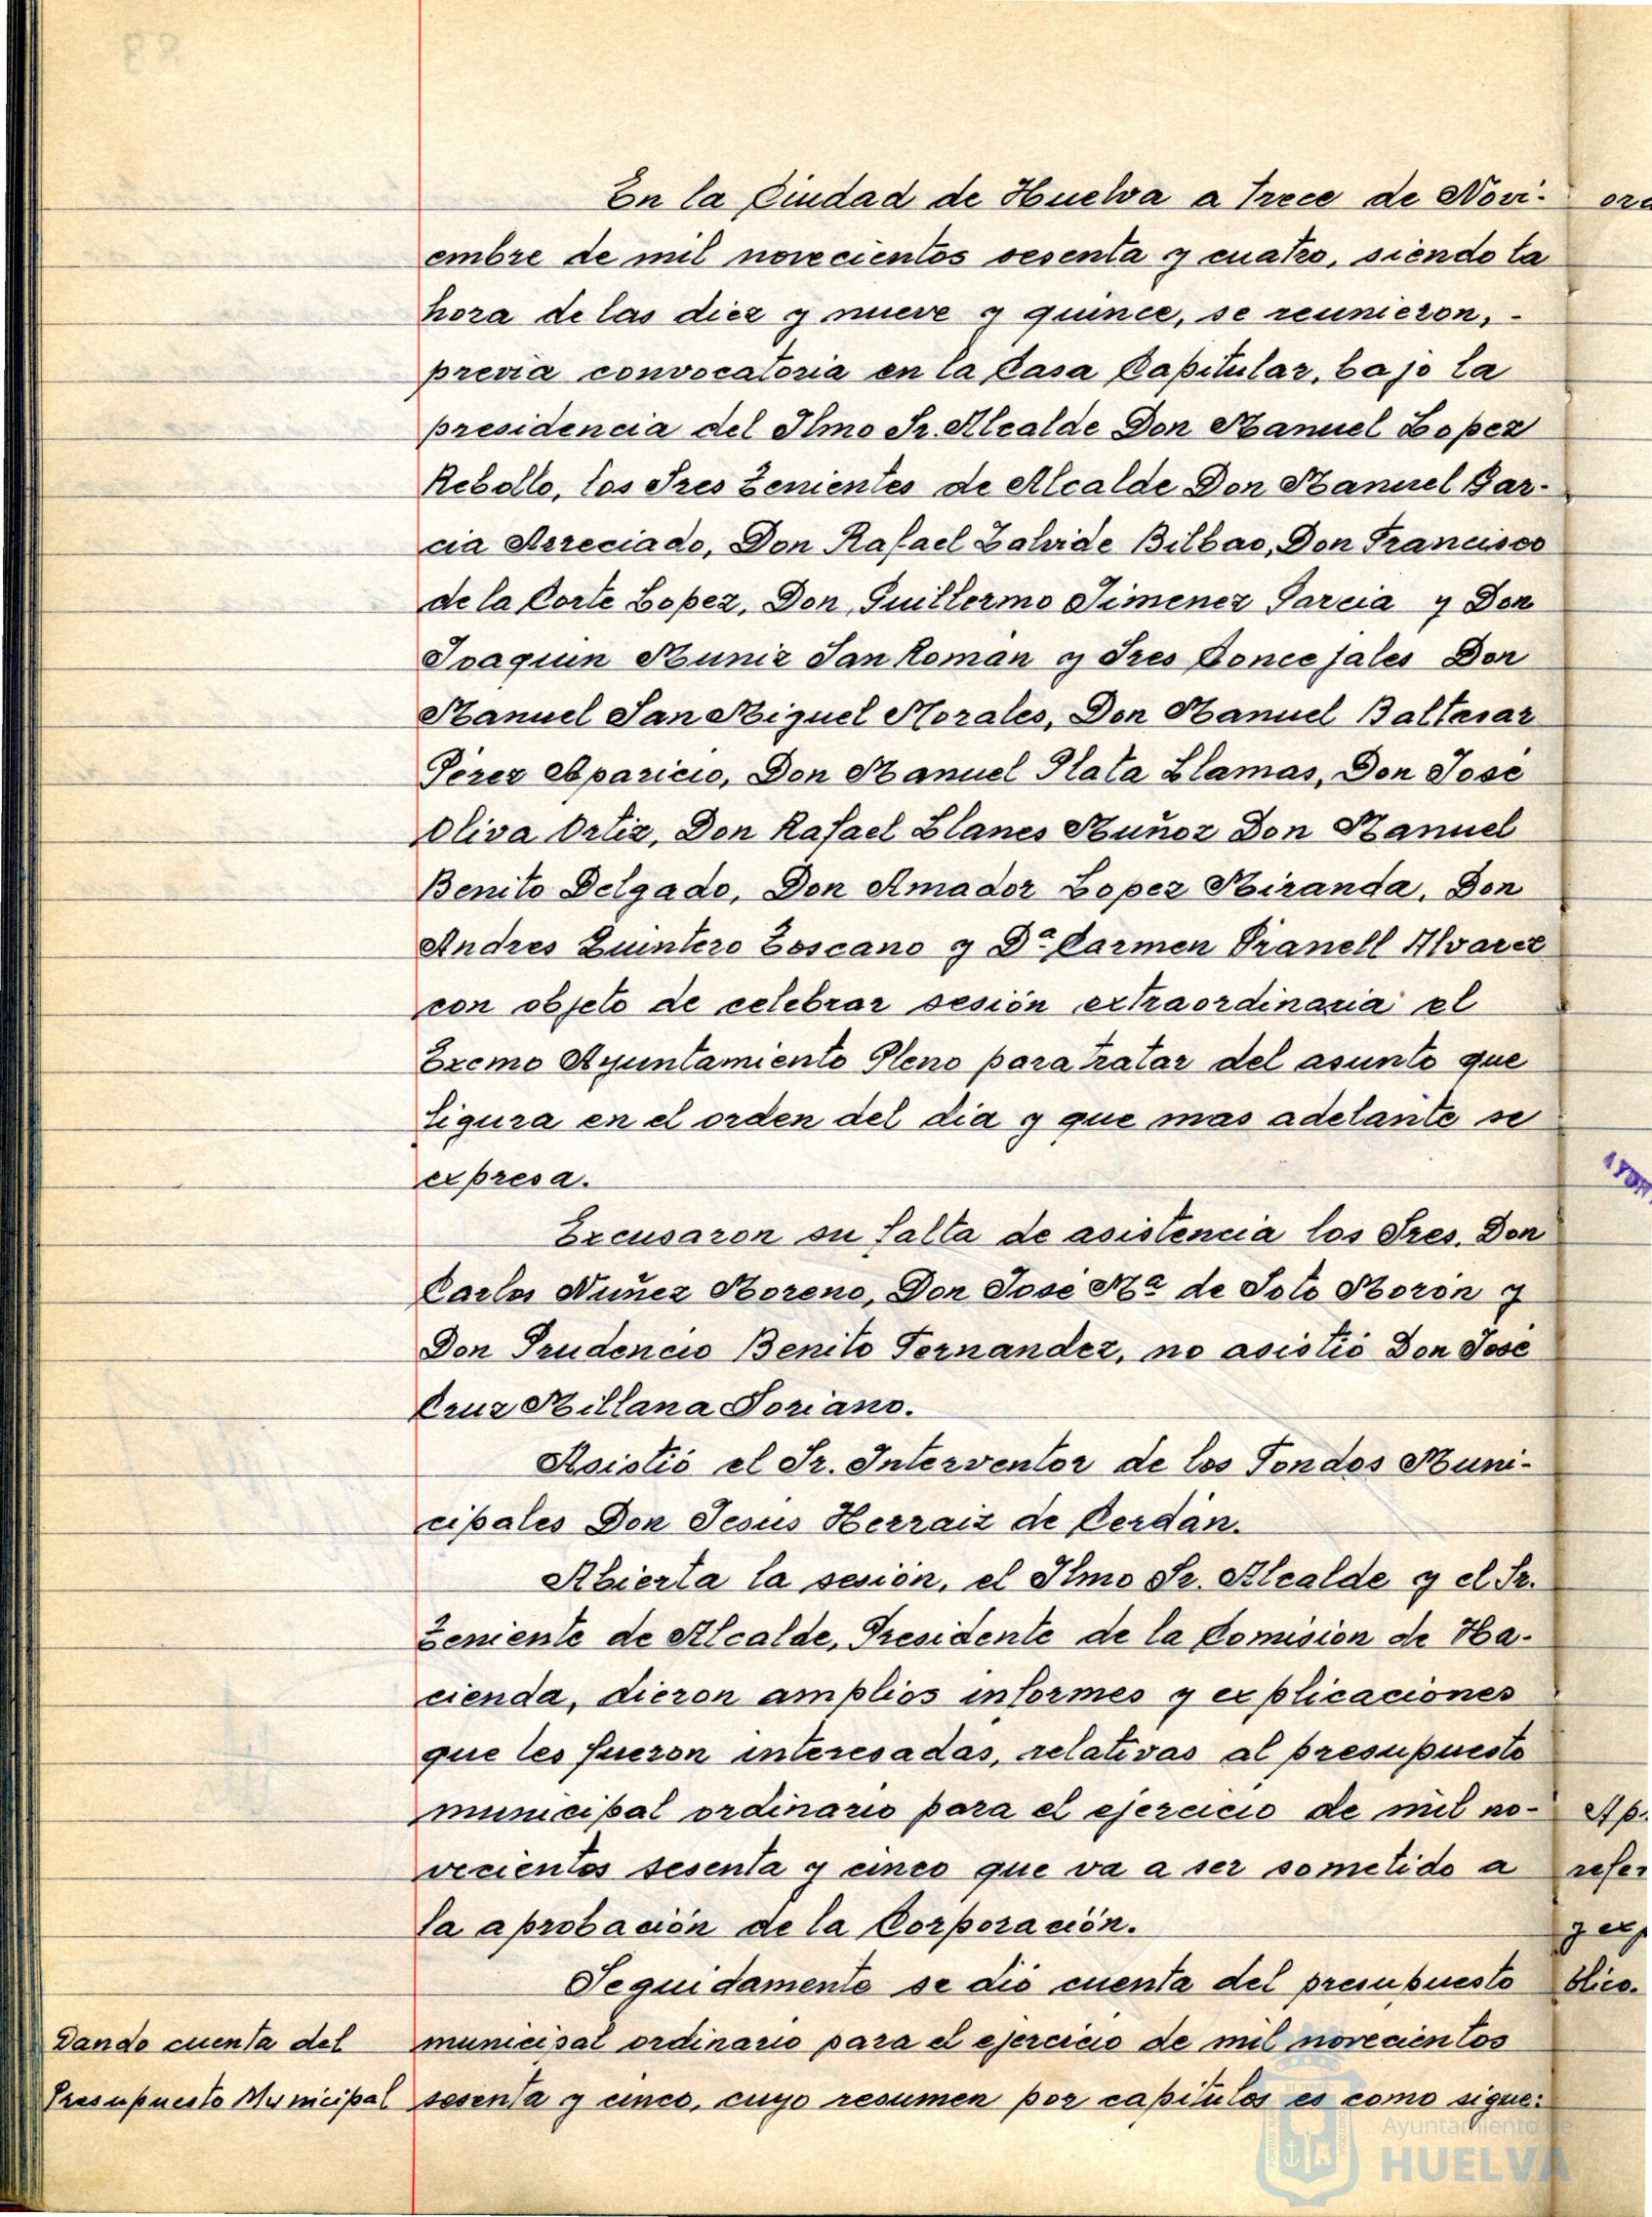 En la Ciudad de Huelva a trece de Novi-
embre de mil novecientos sesenta y cuatro, siendo la
hora de las diez y nueve y quince, se reunieron, -
previa convocatoria en la Casa Capitular, bajo la
presidencia del Ilmo Sr. Alcalde Don Manuel Lopez
Rebollo, los Sres Tenientes de Alcalde Don Manuel Gar-
cia Arreciado, Don Rafael Zalvide Bilbao, Don Francisco
de la Corte Lopez, Don Guillermo Jimenez Garcia y Don
Joaquin Muniz San Roman y Sres Concejales Don
Manuel San Miguel Morales, Don Manuel Baltasar
Pérez Aparicio, Don Manuel Plata Llamas, Don José
Oliva Ortiz, Don Rafael Llanes Muñoz Don Manuel
Benito Delgado, Don Amador Lopez Miranda, Don
Andres Quintero Toscano y Dª Carmen Pranell Alvarez
con objeto de celebrar sesión extraordinaria el
Excmo Ayuntamiento Pleno para tratar del asunto que
figura en el orden del dia y que mas adelante se
expresa.
Excusaron su falta de asistencia los Sres. Don
Carlos Nuñez Moreno, Don José Mª de Soto Morón y
Don Prudencio Benito Fernandez, no asistió Don José
Cruz Millana Soriano.
Asistió el Sr. Interventor de los Fondos Muni-
cipales Don Jesús Herraiz de Cerdán.
Abierta la sesión, el Ilmo Sr. Alcalde y el Sr.
Teniente de Alcalde, Presidente de la Comisión de Ha-
cienda, dieron amplios informes y explicaciones
que les fueron interesadas, relativas al presupuesto
municipal ordinario para el ejercicio de mil no-
vecientos sesenta y cinco que va a ser sometido a
la aprobación de la Corporación.
Seguidamente se dió cuenta del presupuesto
Dando cuenta del municipal ordinario para el ejercicio de mil novecientos
Presupuesto Municipal sesenta y cinco, cuyo resumen por capítulos es como sigue:
Ayuntamiento de
HUELVA